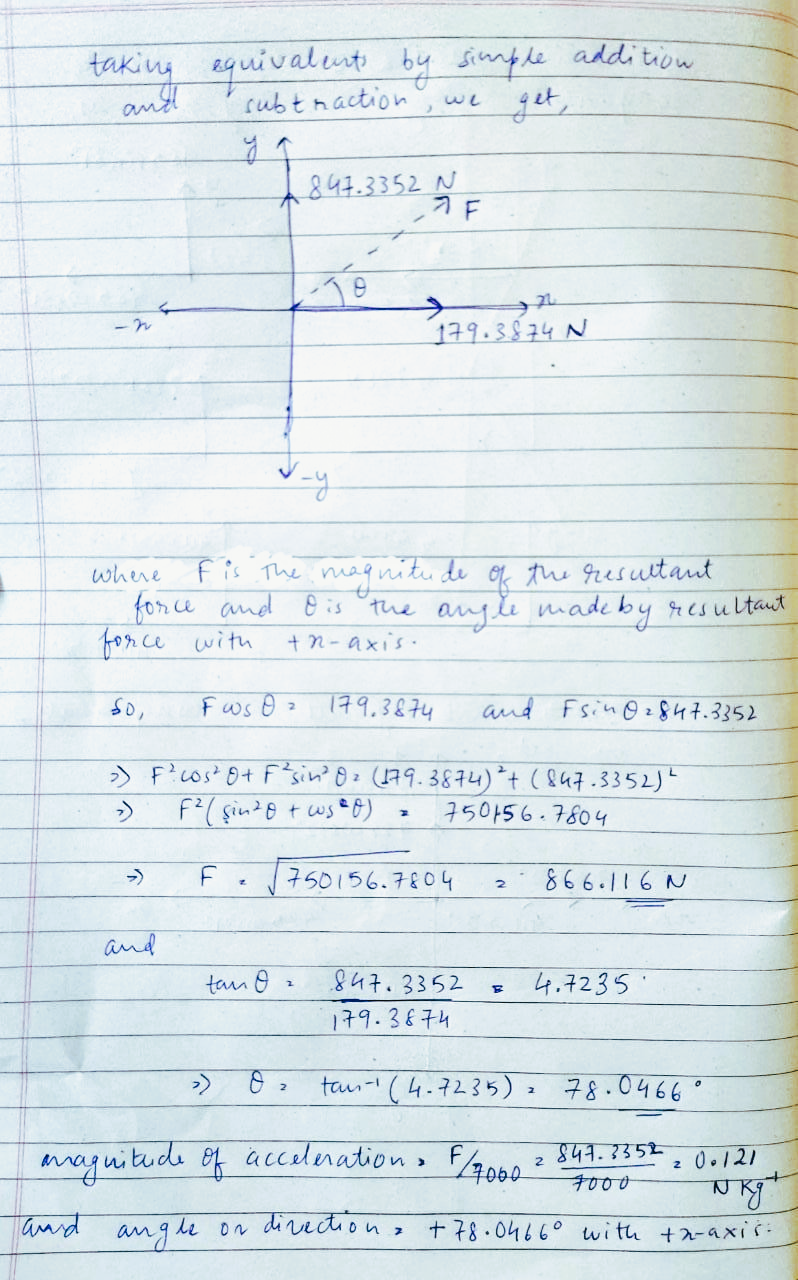 taking equivalents by simple addition
and subtraction, we get,
y
847.3352 N
F
θ
-x
x
179.3874 N
-y
where F is the magnitude of the resultant
force and θ is the angle made by resultant
force with +x-axis.
So, F cos θ = 179.3874 and F sin θ = 847.3352
=> F² cos² θ + F² sin² θ = (179.3874)² + (847.3352)²
=> F² (sin² θ + cos² θ) = 750156.7804
=> F = √750156.7804 = 866.116 N
and
tan θ = 847.3352 / 179.3874 = 4.7235
=> θ = tan⁻¹ (4.7235) = 78.0466°
magnitude of acceleration = F/7000 = 847.3352 / 7000 = 0.121 N Kg⁻¹
and angle or direction = +78.0466° with +x-axis.